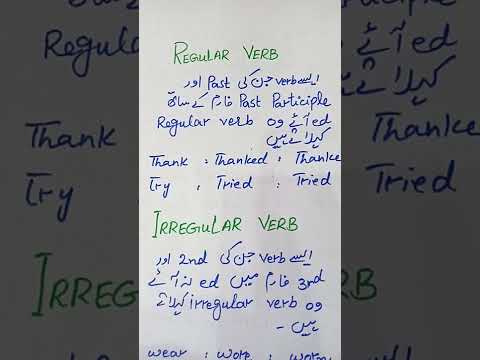 REGULAR VERB
ایسے verb جن کی Past اور
Past Participle فارم کے ساتھ
ed آئے وہ Regular verb
کہلاتے ہیں
Thank : Thanked : Thanke
Try , Tried , Tried
IRREGULAR VERB
ایسے verb جن کی 2nd اور
3rd فارم میں ed نہ آئے
وہ irregular verb کہلاتے
ہیں -
wear : wore : worn